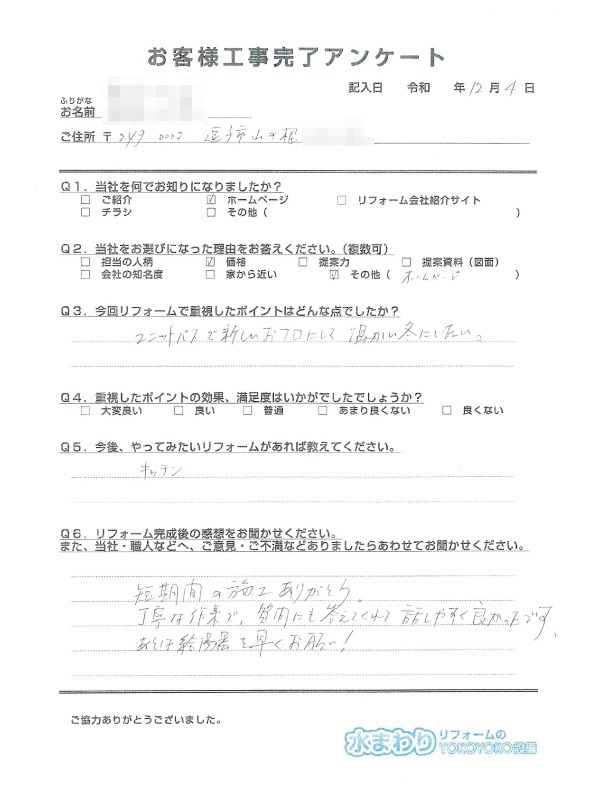 お客様工事完了アンケート
記入日 令和 年12月4日
ふりがな
お名前
ご住所 〒249 0002 逗子市山の根
Q1. 当社を何でお知りになりましたか?
□ ご紹介 ☑ ホームページ □ リフォーム会社紹介サイト
□ チラシ □ その他 ( )
Q2. 当社をお選びになった理由をお答えください。(複数可)
□ 担当の人柄 ☑ 価格 □ 提案力 □ 提案資料(図面)
□ 会社の知名度 □ 家から近い ☑ その他 ( ホームページ )
Q3. 今回リフォームで重視したポイントはどんな点でしたか?
ユニットバスで新しいおフロにして 温かい冬にしたい。
Q4. 重視したポイントの効果、満足度はいかがでしたでしょうか?
□ 大変良い □ 良い □ 普通 □ あまり良くない □ 良くない
Q5. 今後、やってみたいリフォームがあれば教えてください。
キッチン
Q6. リフォーム完成後の感想をお聞かせください。
また、当社・職人などへ、ご意見・ご不満などありましたらあわせてお聞かせください。
短期間の施工ありがとう。
丁寧な作業で、質問にも答えてくれて 話しやすく良かったです、
あとは給湯器を早くお願い!
ご協力ありがとうございました。
水まわり リフォームの
YOKOYOKO設備